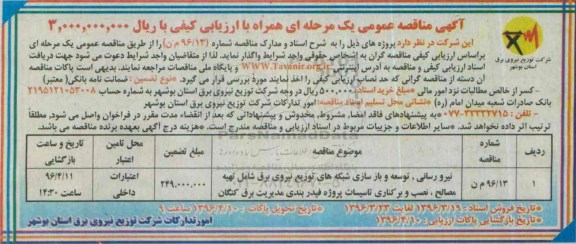 آگهی مناقصه عمومی یک مرحله ای همراه با ارزیابی کیفی با ریال ۳,۰۰۰,۰۰۰,۰۰۰
شرکت توزیع نیروی برق
استان بوشهر
این شرکت در نظر دارد پروژه های ذیل را به شرح اسناد و مدارک مناقصه شماره (۹۶/۱۳ م ن) را از طریق مناقصه عمومی یک مرحله ای
براساس ارزیابی کیفی مناقصه گران به اشخاص حقوقی واجد شرایط واگذار نماید. لذا از متقاضیان واجد شرایط دعوت می شود جهت دریافت
اسناد ارزیابی کیفی و مناقصه به آدرس اینترنتی www.Tavanir.org.ir و پایگاه ملی مناقصات مراجعه نمایند. بدیهی است پاکات مناقصه
آن دسته از مناقصه گرانی که حد نصاب ارزیابی کیفی را اخذ نمایند مورد بررسی قرار می گیرد. *نوع تضمین: ضمانت نامه بانکی (معتبر)
- کسر از خالص مطالبات نزد امور مالی *مبلغ خرید اسناد: ۵۰۰,۰۰۰ ریال در وجه شرکت توزیع نیروی برق استان بوشهر به شماره حساب ۲۱۹۵۱۲۱۰۵۳۰۰۸
بانک صادرات شعبه میدان امام (ره) *نشانی محل تسلیم اسناد مناقصه: امور تدارکات شرکت توزیع نیروی برق استان بوشهر
- تلفن: ۳۳۳۳۷۷۱۵-۰۷۷ *به پیشنهادهای فاقد امضا، مشروط، مخدوش و پیشنهاداتی که بعد از انقضاء مدت مقرر در فراخوان واصل می شود، مطلقاً
ترتیب اثر داده نخواهد شد. *سایر اطلاعات و جزییات مربوط در اسناد ارزیابی و مناقصه مندرج است. *هزینه درج آگهی بعهده برنده مناقصه می باشد.
ردیف شماره مناقصه موضوع مناقصه مبلغ تضمین محل تامین اعتبار تاریخ و ساعت بازگشایی
۱ ۹۶/۱۳ م ن نیرو رسانی، توسعه و باز سازی شبکه های توزیع نیروی برق شامل تهیه مصالح، نصب و برکناری تاسیسات پروژه فیدر بندی مدیریت برق کنگان ۲۴۹,۰۰۰,۰۰۰ اعتبارات داخلی ۹۶/۴/۱۱ ۱۴:۳۰
*تاریخ فروش اسناد: ۱۳۹۶/۳/۱۹ لغایت ۱۳۹۶/۳/۲۳ *تاریخ تحویل پاکات: ۱۳۹۶/۴/۱۰
*تاریخ بازگشایی پاکات ارزیابی: ۱۳۹۶/۴/۱۰ امور تدارکات شرکت توزیع نیروی برق استان بوشهر